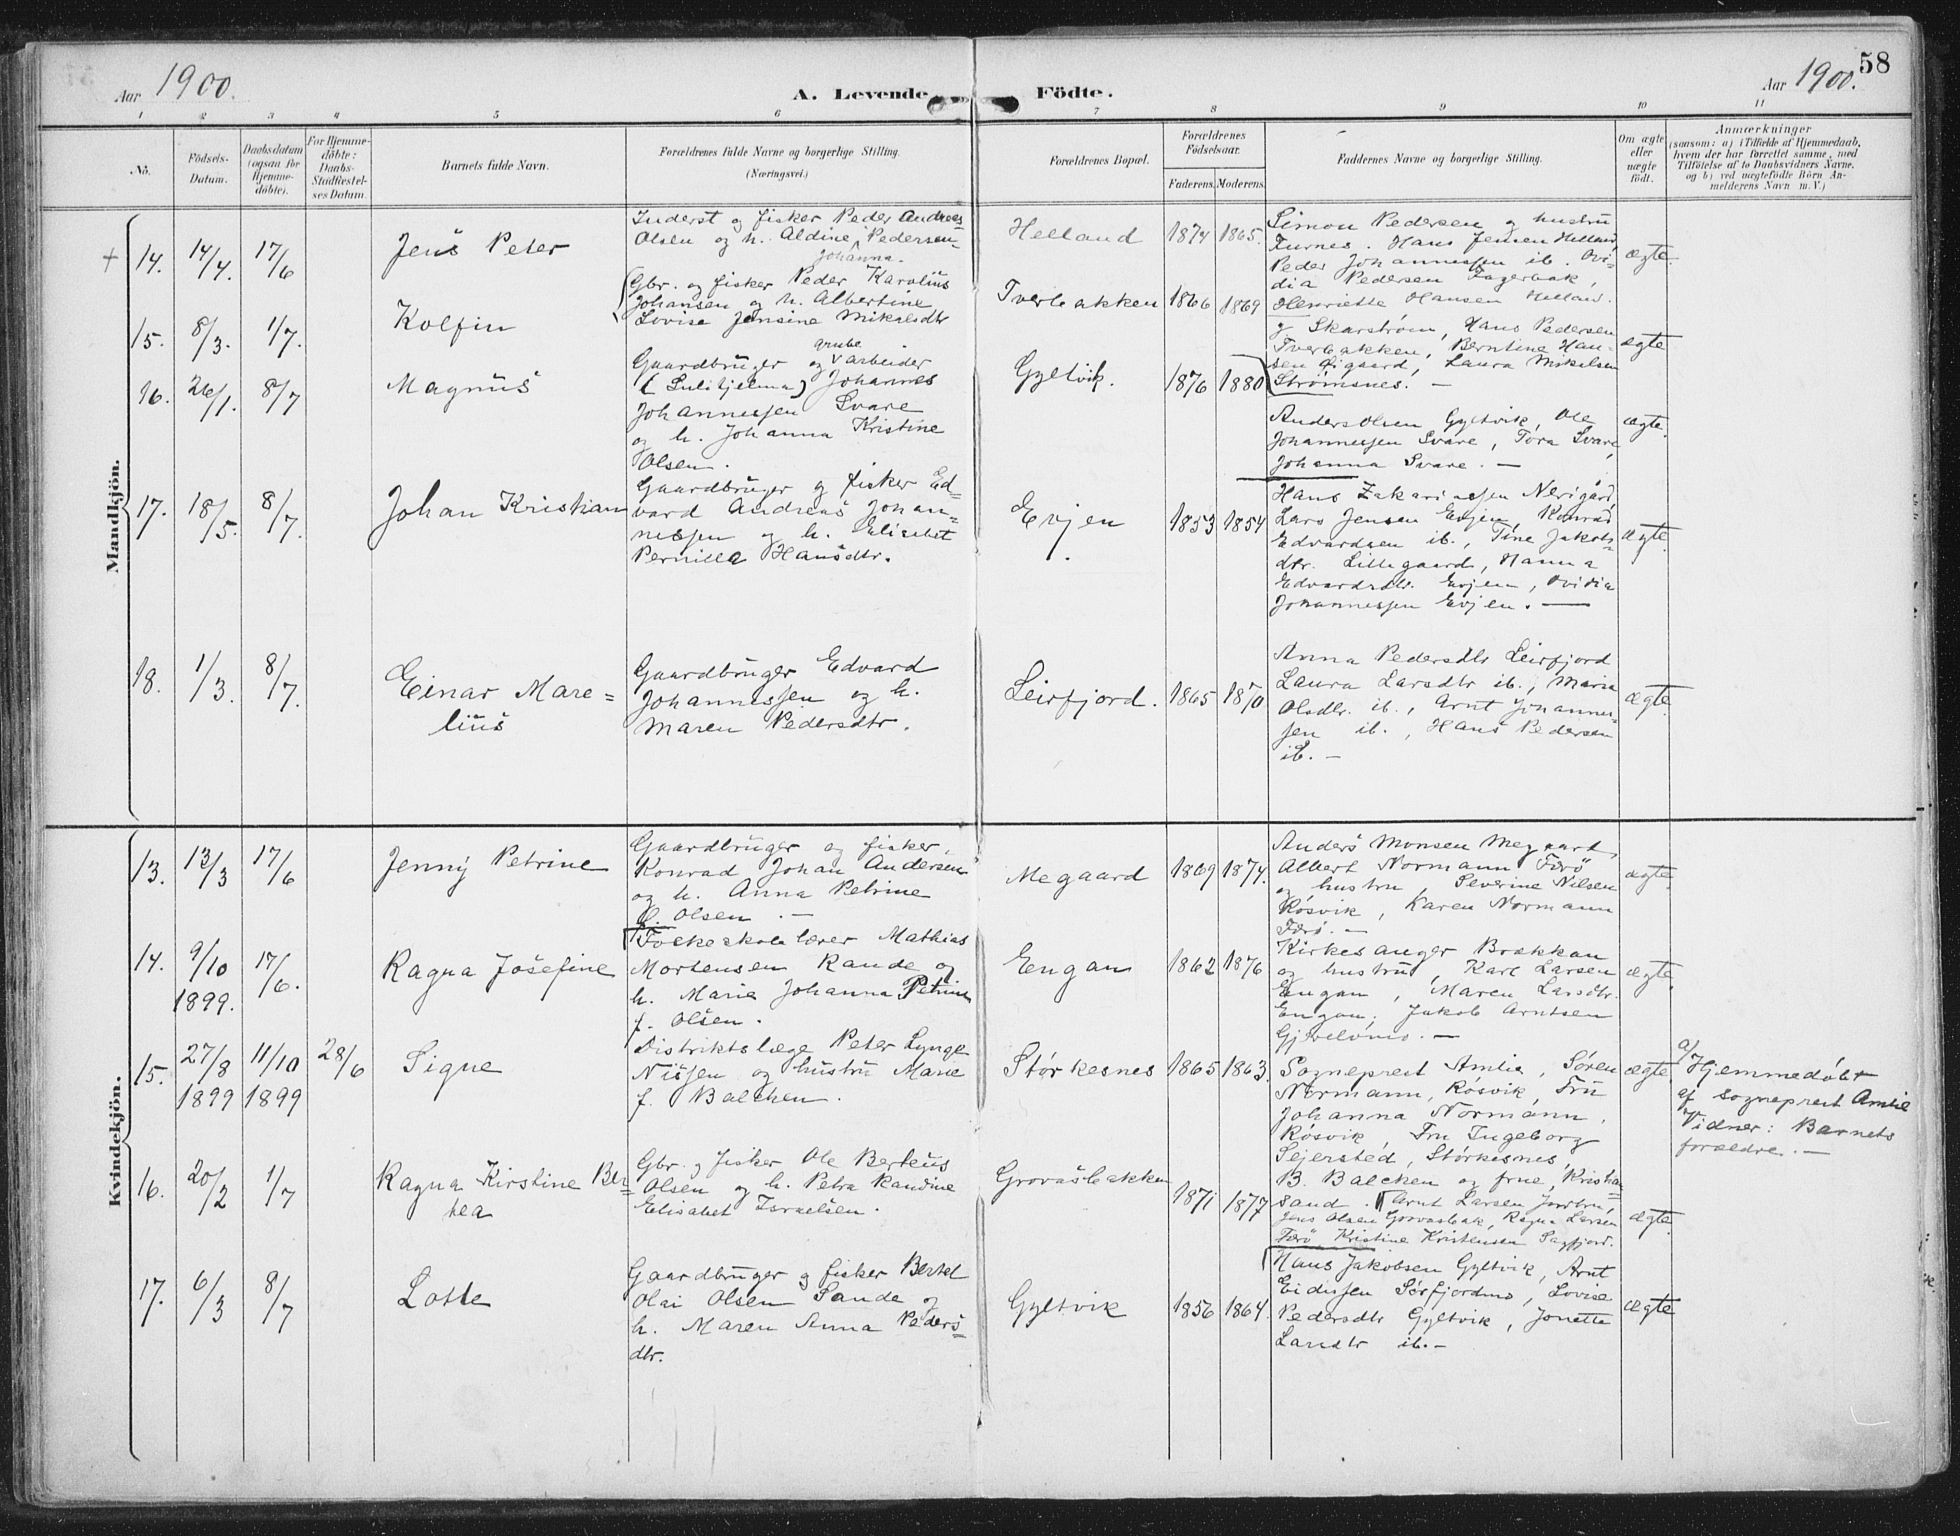 58
Aar 1900.
A. Levende Födte.
Aar 1900.
1 2 3 4 5 6 7 8 9 10 11
No.
Födsels-Datum.
Daabsdatum (ogsaa for Hjemme-döbte).
For Hjemme-döbte: Daabs-Stadfæstel-ses Datum
Barnets fulde Navn.
Forældrenes fulde Navne og borgerlige Stilling.
(Næringsvei.)
Forældrenes Bopæl.
Forældrenes Födselsaar.
Faderens. Moderens.
Faddernes Navne og borgerlige Stilling.
Om ægte eller uægte födt.
Anmærkninger
(saasom: a) i Tilfælde af Hjemmedaab, hvem der har forrettet samme, med Tilföielse af to Daabsvidners Navne, og b) ved uægtefödte Börn Anmelderens Navn m. V.)
Mandkjön.
+ 14. 14/4. 17/6 Jens Peter
Inderst og fisker Peder Andreas
Olsen og h. Aldine Johanna Pedersen
Helland 1874 1865.
Simon Pedersen og hustru
Furnes. Hans Jensen Helland,
Peder Johannessen ib. Ovi-
dia Pedersen Fagerbak,
Henriette Hansen Helland.
ægte.
15. 8/3. 1/7. Kolfin
Gbr. og fisker Peder Karolius
Johansen og h. Albertine
Lovise Jensine Mikalsdtr
Tverbakken 1866 1869
Skarstrøm, Hans Pedersen
Tverbakken, Berntine Han-
sen Øigaard, Laura Mikelsen
Strømsnes. —
ægte
16. 26/1. 8/7 Magnus
Gaardbruger og grube arbeider
(Sulitjelma) Johannes
Johannessen Svare
og h. Johanna Kristine
Olsen.
Gyltvik. 1876 1880
Anders Olsen Gyltvik, Ole
Johannessen Svare, Tora Svare,
Johanna Svare. —
ægte.
17. 18/5. 8/7. Johan Kristian
Gaardbruger og fisker Ed-
vard Andreas Johan-
nessen og h. Elisabet
Pernilla Hansdtr.
Evjen. 1853 1854
Hans Zakariassen Nerigård,
Lars Jensen Evjen, Konrad
Edvardsen ib., Tine Jakobs-
dtr. Lillegaard, Hanna
Edvardsdtr. Evjen, Ovidia
Johannessen Evjen. —
ægte.
18. 1/3. 8/7. Einar Mare-
lius
Gaardbruger Edvard
Johannessen og h.
Maren Pedersdtr.
Leirfjord. 1865 1870
Anna Pedersdtr Leirfjord
Laura Larsdtr ib., Maria
Olsdtr. ib., Arnt Johannes-
sen ib., Hans Pedersen
ib. —
ægte.
Kvindekjön.
13. 13/3 17/6 Jenny Petrine
Gaardbruger og fisker
Konrad Johan Andersen
og h. Anna Petrine
f. Olsen. —
Megaard 1869 1874.
Anders Monsen Megaard,
Albert Normann Færø
og hustru, Severine Nilsen
Røsvik, Karen Normann
Færø. —
ægte.
14. 9/10 1899. 17/6. Ragna Josefine
Folkeskolelærer Mathias
Mortensen Rande og
h. Marie Johanna Petrine
f. Olsen.
Engan 1862 1876
Kirkesanger Brækkan
og hustru, Karl Larsen
Engan, Maren Larsdtr.
Engan, Jakob Arntsen
ægte.
15. 27/8 1899 11/10 1899 28/6 Signe
Distriktslæge Peter Lynge
Nissen og hustru Marie
f. Balchen.
Størkesnes 1865 1863.
Sogneprest Amlie, Søren
Normann, Røsvik, Fru
Johanna Normann,
Røsvik, Fru Ingeborg
Sejersted, Størkesnes,
B. Balchen og frue, Kristian-
sand.
ægte.
a) Hjemmedøbt
af sogneprest Amlie
Vidner: Barnets
forældre. —
16. 20/2 1/7 Ragna Kirstine Ber-
tea
Gbr. og fisker Ole Berteus
Olsen og h. Petra Randine
Elisabet Israelsen.
Grovasbakken 1871 1877
Arnt Larsen
Jens Olsen Grovasbak, Ragna Larsen
Færø Kristine Kristensen Sagfjord.
ægte
17. 6/3 8/7 Lotte
Gaardbruger og fisker Bertel
Olai Olsen Sande og
h. Maren Anna Peders-
dtr.
Gyltvik 1856 1864.
Hans Jakobsen Gyltvik, Arnt
Eidissen Sørfjordmo, Lovise
Pedersdtr Gyltvik, Jonette
Larsdtr ib. —
ægte